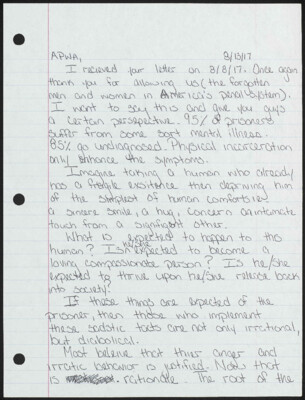 APWA, 3/13/17
I received your letter on 3/8/17. Once again
thank you for allowing us (the forgotten
men and women in America's penal system).
I want to say this and give you guys
a certain perspective. 95% of prisoners
suffer from some sort mental illness.
85% go undiagnosed. Physical incarceration
only enhance the symptoms.
Imagine taking a human who already
has a fragile existence then depriving him
of the simplest of human comforts
a sincere smile, a hug, concern or intimate
touch from a significant other.
What is expected to happen to this
human? Is he/she expected to become a
loving compassionate person? Is he/she
expected to thrive upon he/she release back
into society?
If these things are expected of the
prisoner, then those who implement
these sadistic tacts are not only irrational,
but diabolical.
Most believe that thier anger and
irratic behavior is justified. Now that
is rationale. The root of the